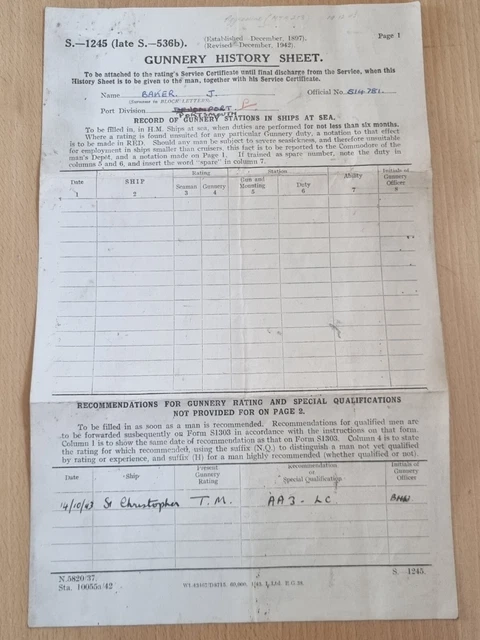 S.—1245 (late S.—536b).
(Established—December, 1897).
(Revised—December, 1942)
Page 1
GUNNERY HISTORY SHEET.
To be attached to the rating's Service Certificate until final discharge from the Service, when this
History Sheet is to be given to the man, together with his Service Certificate.
Name BAKER J. Official No. 514781.
(Surname in BLOCK LETTERS)
Port Division DEVONPORT
PORTSMOUTH
RECORD OF GUNNERY STATIONS IN SHIPS AT SEA.
To be filled in, in H.M. Ships at sea, when duties are performed for not less than six months.
Where a rating is found unfitted for any particular Gunnery duty, a notation to that effect
is to be made in RED. Should any man be subject to severe seasickness, and therefore unsuitable
for employment in ships smaller than cruisers, this fact is to be reported to the Commodore of the
man's Depot, and a notation made on Page 1. If trained as spare number, note the duty in
columns 5 and 6, and insert the word "spare" in column 7.
Date SHIP Rating Station Ability Initials of Gunnery Officer
Seaman Gunnery Gun and Mounting Duty
1 2 3 4 5 6 7 8
RECOMMENDATIONS FOR GUNNERY RATING AND SPECIAL QUALIFICATIONS
NOT PROVIDED FOR ON PAGE 2.
To be filled in as soon as a man is recommended. Recommendations for qualified men are
to be forwarded susbequently on Form S1303 in accordance with the instructions on that form.
Column 1 is to show the same date of recommendation as that on Form S1303. Column 4 is to state
the rating for which recommended, using the suffix (N.Q.) to distinguish a man not yet qualified
by rating or experience, and suffix (H) for a man highly recommended (whether qualified or not).
Date Ship Present Gunnery Rating Recommendation or Special Qualification Initials of Gunnery Officer
14/10/43 St Christopher T.M. AA3 - LC.
N.5820/37.
Sta. 10055a/42
S.—1245.